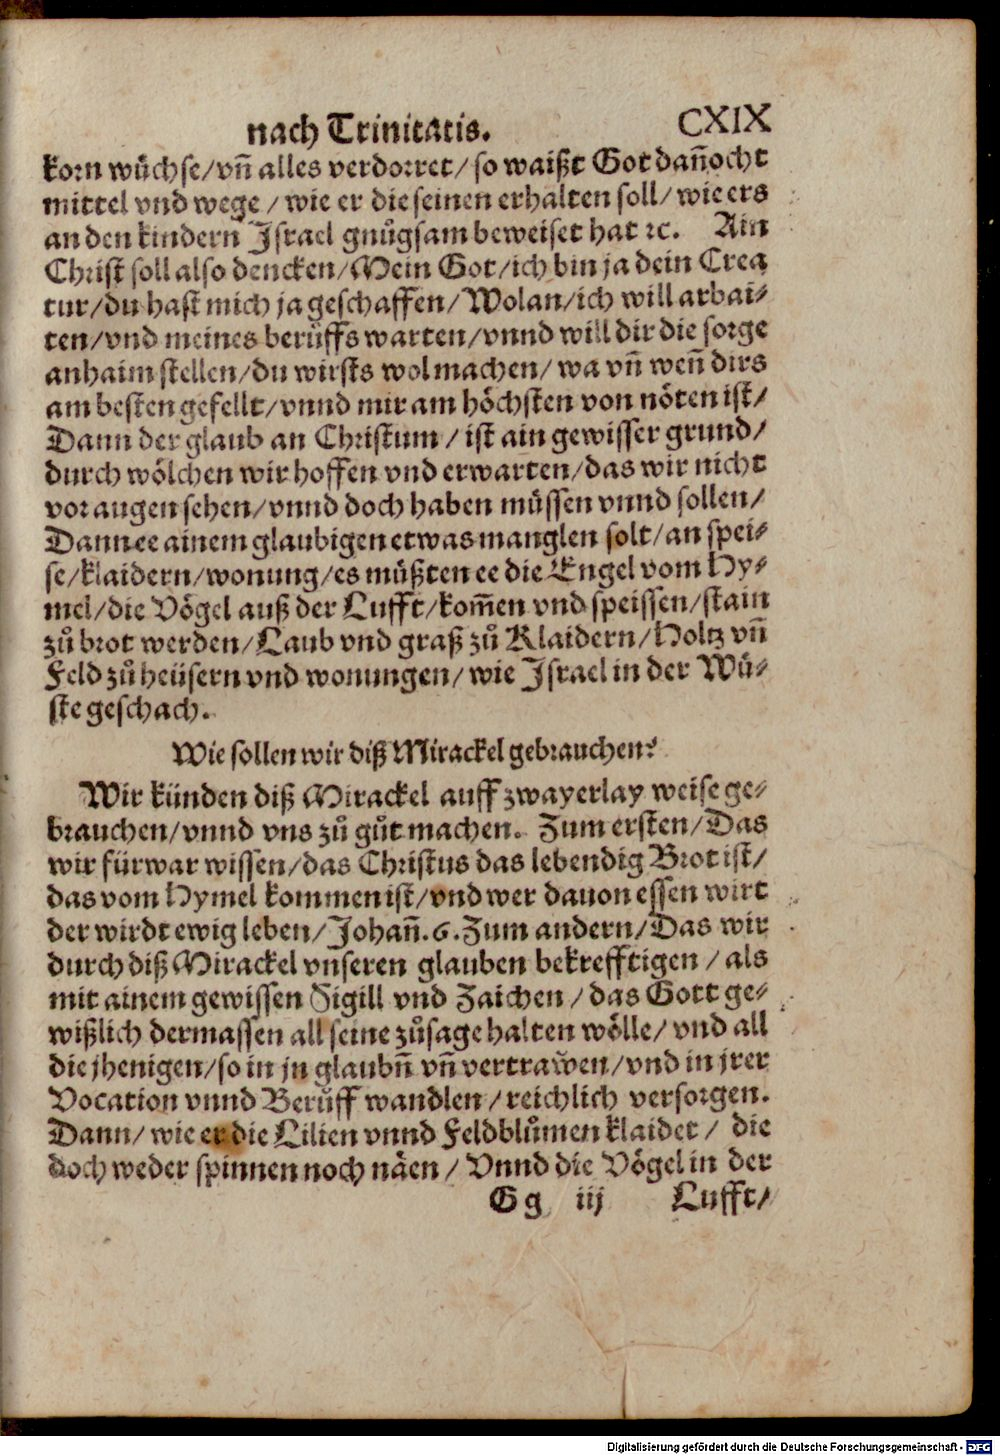 nach Trinitatis. CXIX
korn wüchse/vñ alles verdorret/so waißt Got dañocht
mittel vnd wege/wie er die seinen erhalten soll/wie ers
an den kindern Israel gnůgsam beweiset hat ꝛc. Ain
Christ soll also dencken/Mein Got/ich bin ja dein Crea
tur/du hast mich ja geschaffen/Wolan/ich will arbai-
ten/vnd meines berůffs warten/vnnd will dir die sorge
anhaim stellen/du wirsts wol machen/wa vñ weñ dirs
am besten gefellt/vnnd mir am höchsten von nöten ist/
Dann der glaub an Christum/ist ain gewisser grund/
durch wölchen wir hoffen vnd erwarten/das wir nicht
vor augen sehen/vnnd doch haben müssen vnnd sollen/
Dann ee ainem glaubigen etwas manglen solt/an spei-
se/klaidern/wonung/es müßten ee die Engel vom Hy-
mel/die Vögel auß der Lufft/kom̃en vnd speissen/stain
zů brot werden/Laub vnd graß zů Klaidern/Holtz vñ
Feld zů heüsern vnd wonungen/wie Israel in der Wü-
ste geschach.
Wie sollen wir diß Mirackel gebrauchen?
Wir künden diß Mirackel auff zwayerlay weise ge-
brauchen/vnnd vns zů gůt machen. Zum ersten/Das
wir fürwar wissen/das Christus das lebendig Brot ist/
das vom Hymel kommen ist/vnd wer dauon essen wirt
der wirdt ewig leben/Johañ.6. Zum andern/Das wir
durch diß Mirackel vnseren glauben bekrefftigen/als
mit ainem gewissen Sigill vnd Zaichen/das Gott ge-
wißlich dermassen all seine zůsage halten wölle/vnd all
die jhenigen/so in jn glaubñ vñ vertrawen/vnd in jrer
Vocation vnnd Berůff wandlen/reichlich versorgen.
Dann/wie er die Lilien vnnd Feldblůmen klaidet/die
doch weder spinnen noch näen/Vnnd die Vögel in der
Gg iij Lufft/
Digitalisierung gefördert durch die Deutsche Forschungsgemeinschaft - DFG